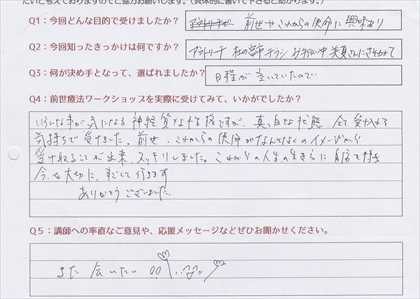 たいと考えておりますのでご協力お願いします。(具体的に書いて下さると助かります。)
Q1：今回どんな目的で受けましたか？ 前世やこれからの使命に興味あり
Q2：今回知ったきっかけは何ですか？
Q3：何が決め手となって、選ばれましたか？ 日程が空いていたので
Q4：前世療法ワークショップを実際に受けてみて、いかがでしたか？
いろいろな事が気になる神経質な性格ですが、真っ白な状態、全て受け入れる
気持ちで受けました。前世、これからの使命がなんとなくのイメージから
受け取ることが出来、スッキリしました。これからの人生の生き方に自信を持ち
今を大切に、すごして行きます
ありがとうございました。
Q5：講師への率直なご意見や、応援メッセージなどぜひお聞かせください。
また会いたい